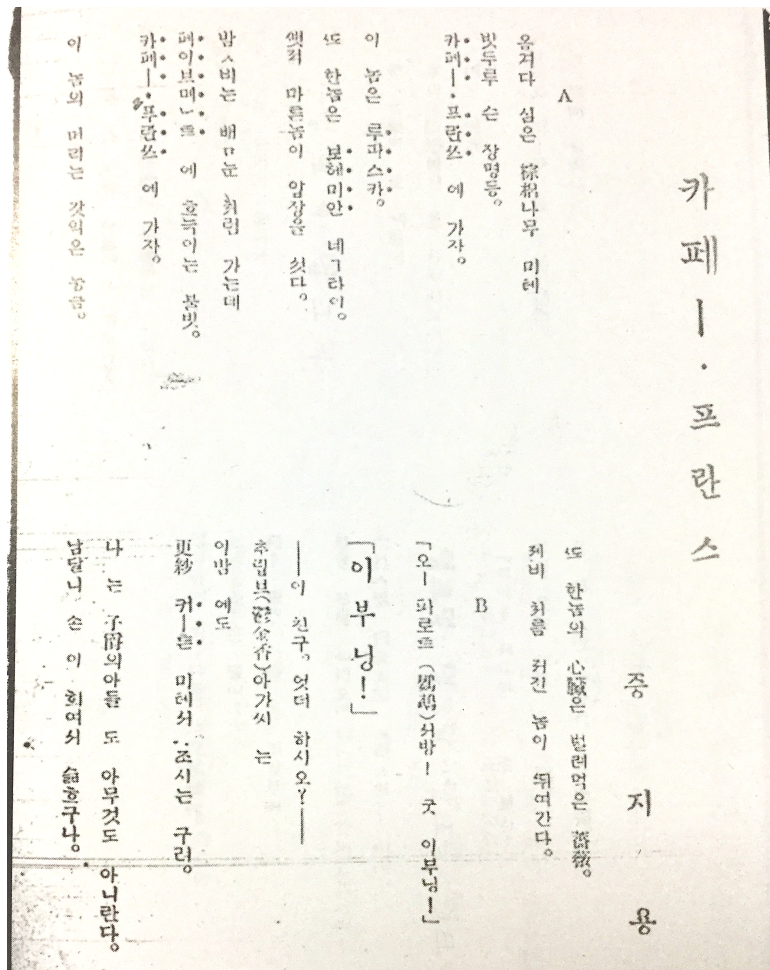 카페ー・프란스
증 지 용
A
옴겨다 심은 棕櫚나무 미테
빗두루 슨 장명등。
카페ー・프란쓰 에 가자。
이 놈은 루파스카。
ᄯᅩ 한놈은 보헤미안 네ㄱ타이。
ᄲᅢᆺ적 마른놈이 압장을 섯다。
밤ㅅ비는 배ㅁ눈 처럼 가는데
페이브메ㄴ트 에 흐늑이는 불빗。
카페ー・프란쓰 에 가자。
이 놈의 머리는 갓익은 능금。
ᄯᅩ 한놈의 心臟은 벌레먹은 薔薇。
제비 처름 저진 놈이 ᄯᅱ여간다。
B
「오ー 파로트(鸚鵡)서방! 굿 이부닝!」
「이부닝!」
――이 친구。엇더 하시오?――
추립브(鬱金香)아가씨 는
이밤 에도
更紗 커ー튼 미테서‥조시는 구려。
나 는 子爵의아들 도 아무것도 아니란다。
남달니 손 이 희여서 슯흐구나。